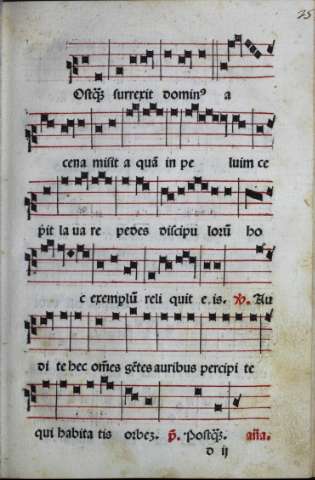 25
Ostq̃ʒ surrexit dominꝰ a
cena misit a quã in pe luim ce
pit la ua re pedes discipu lorũ ho
c exemplũ reli quit e.is. ℣. Au
di te hec om̃es gẽtes auribus percipi te
qui habita tis orbeʒ. p̃. Postq̃ʒ. añа.
d ij